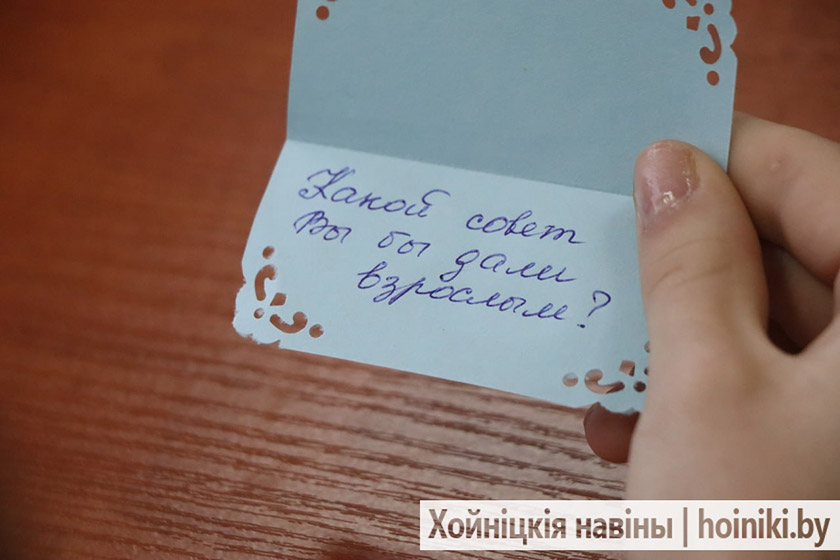 Какой совет
Вы бы дали
взрослым?
Хойніцкія навіны | hoiniki.by